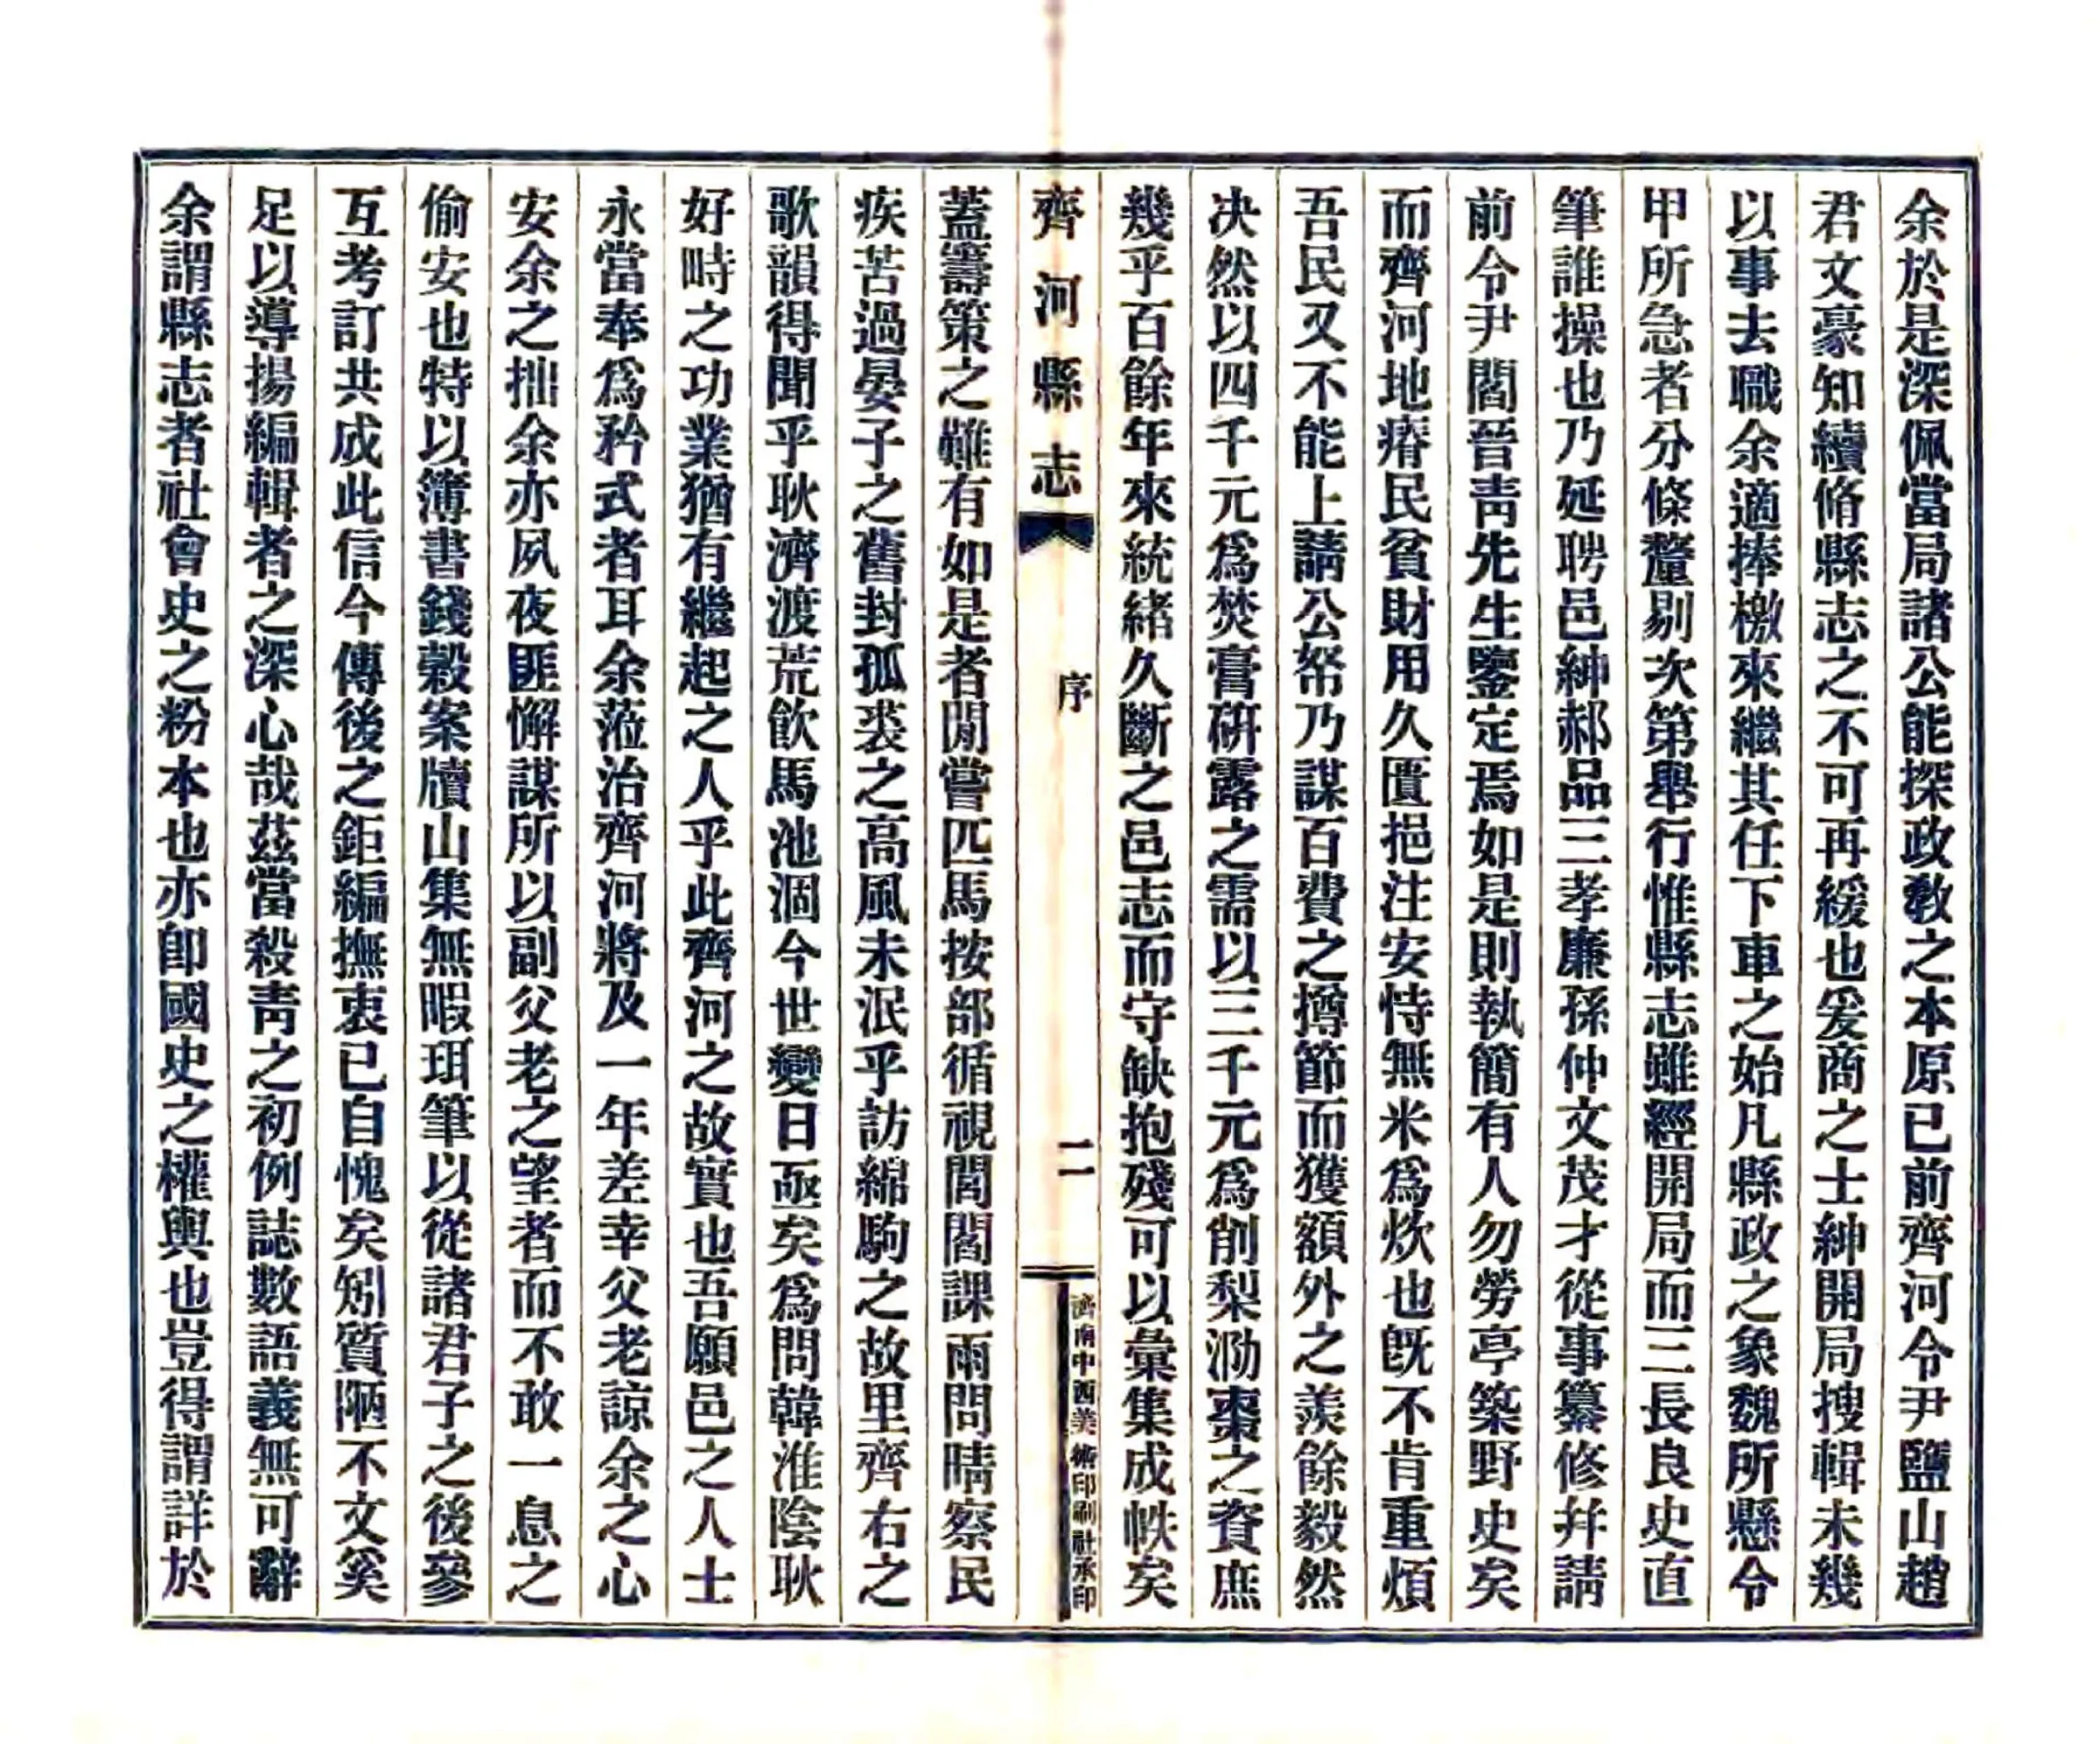 余於是深佩當局諸公能探政教之本原已前齊河令尹鹽山趙
君文豪知續脩縣志之不可再緩也爰商之士紳開局搜輯未幾
以事去職余適捧檄來繼其任下車之始凡縣政之象魏所懸令
甲所急者分條釐剔次第舉行惟縣志雖經開局而三長良史直
筆誰操也乃延聘邑紳郝品三孝廉孫仲文茂才從事纂修幷請
前令尹閻晉靑先生鑒定焉如是則執簡有人勿勞亭築野史矣
而齊河地瘠民貧財用久匱挹注安恃無米爲炊也旣不肯重煩
吾民又不能上請公帑乃謀百費之撙節而獲額外之羨餘毅然
决然以四千元爲焚膏硏露之需以三千元爲削梨泐棗之資庶
幾乎百餘年來統緒久斷之邑志而守缺抱殘可以彙集成帙矣
齊河縣志
序
二
濟南中西美術印刷社承印
蓋籌策之難有如是者閒嘗匹馬按部循視閭閻課雨問晴察民
疾苦過晏子之舊封孤裘之高風未泯乎訪綿駒之故里齊右之
歌韻得聞乎耿濟渡荒飮馬池涸今世變日亟矣爲問韓淮陰耿
好畤之功業猶有繼起之人乎此齊河之故實也吾願邑之人士
永當奉爲矜式者耳余蒞治齊河將及一年差幸父老諒余之心
安余之拙余亦夙夜匪懈謀所以副父老之望者而不敢一息之
偷安也特以簿書錢穀案牘山集無暇珥筆以從諸君子之後參
互考訂共成此信今傳後之鉅編撫衷已自愧矣矧質陋不文奚
足以導揚編輯者之深心哉茲當殺靑之初例誌數語義無可辭
余謂縣志者社會史之粉本也亦卽國史之權輿也豈得謂詳於